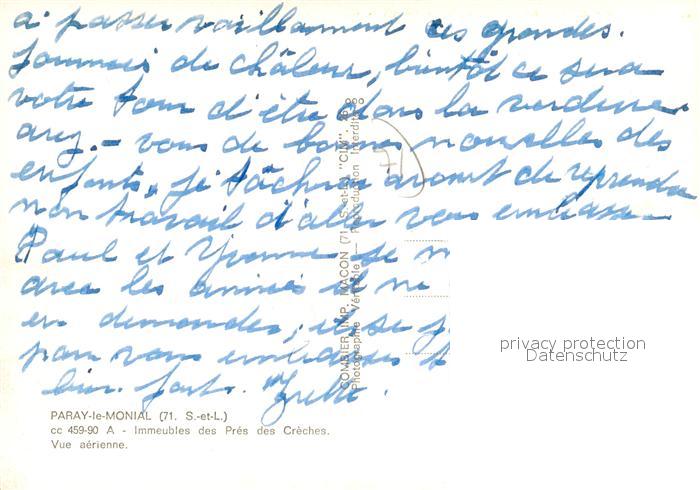 à passer vaillament ces grandes.
journées de châleur, bientôt ce sera
votre tour d'être dans la verdure.
avez - vous de bonnes nouvelles des
enfants, je tâcherai avant de reprendre
mon travail d'aller vous embrasser
Paul et Yvonne se
avec les amies et ne
en demandes, et se
pour vous embrasser
bien fort.
COMBIER IMP. MACON (71. S.-et-L.) "CIM"
Photographie Véritable — Reproduction Interdite
71
privacy protection
Datenschutz
PARAY-le-MONIAL (71. S.-et-L.)
cc 459-90 A - Immeubles des Prés des Crèches.
Vue aérienne.